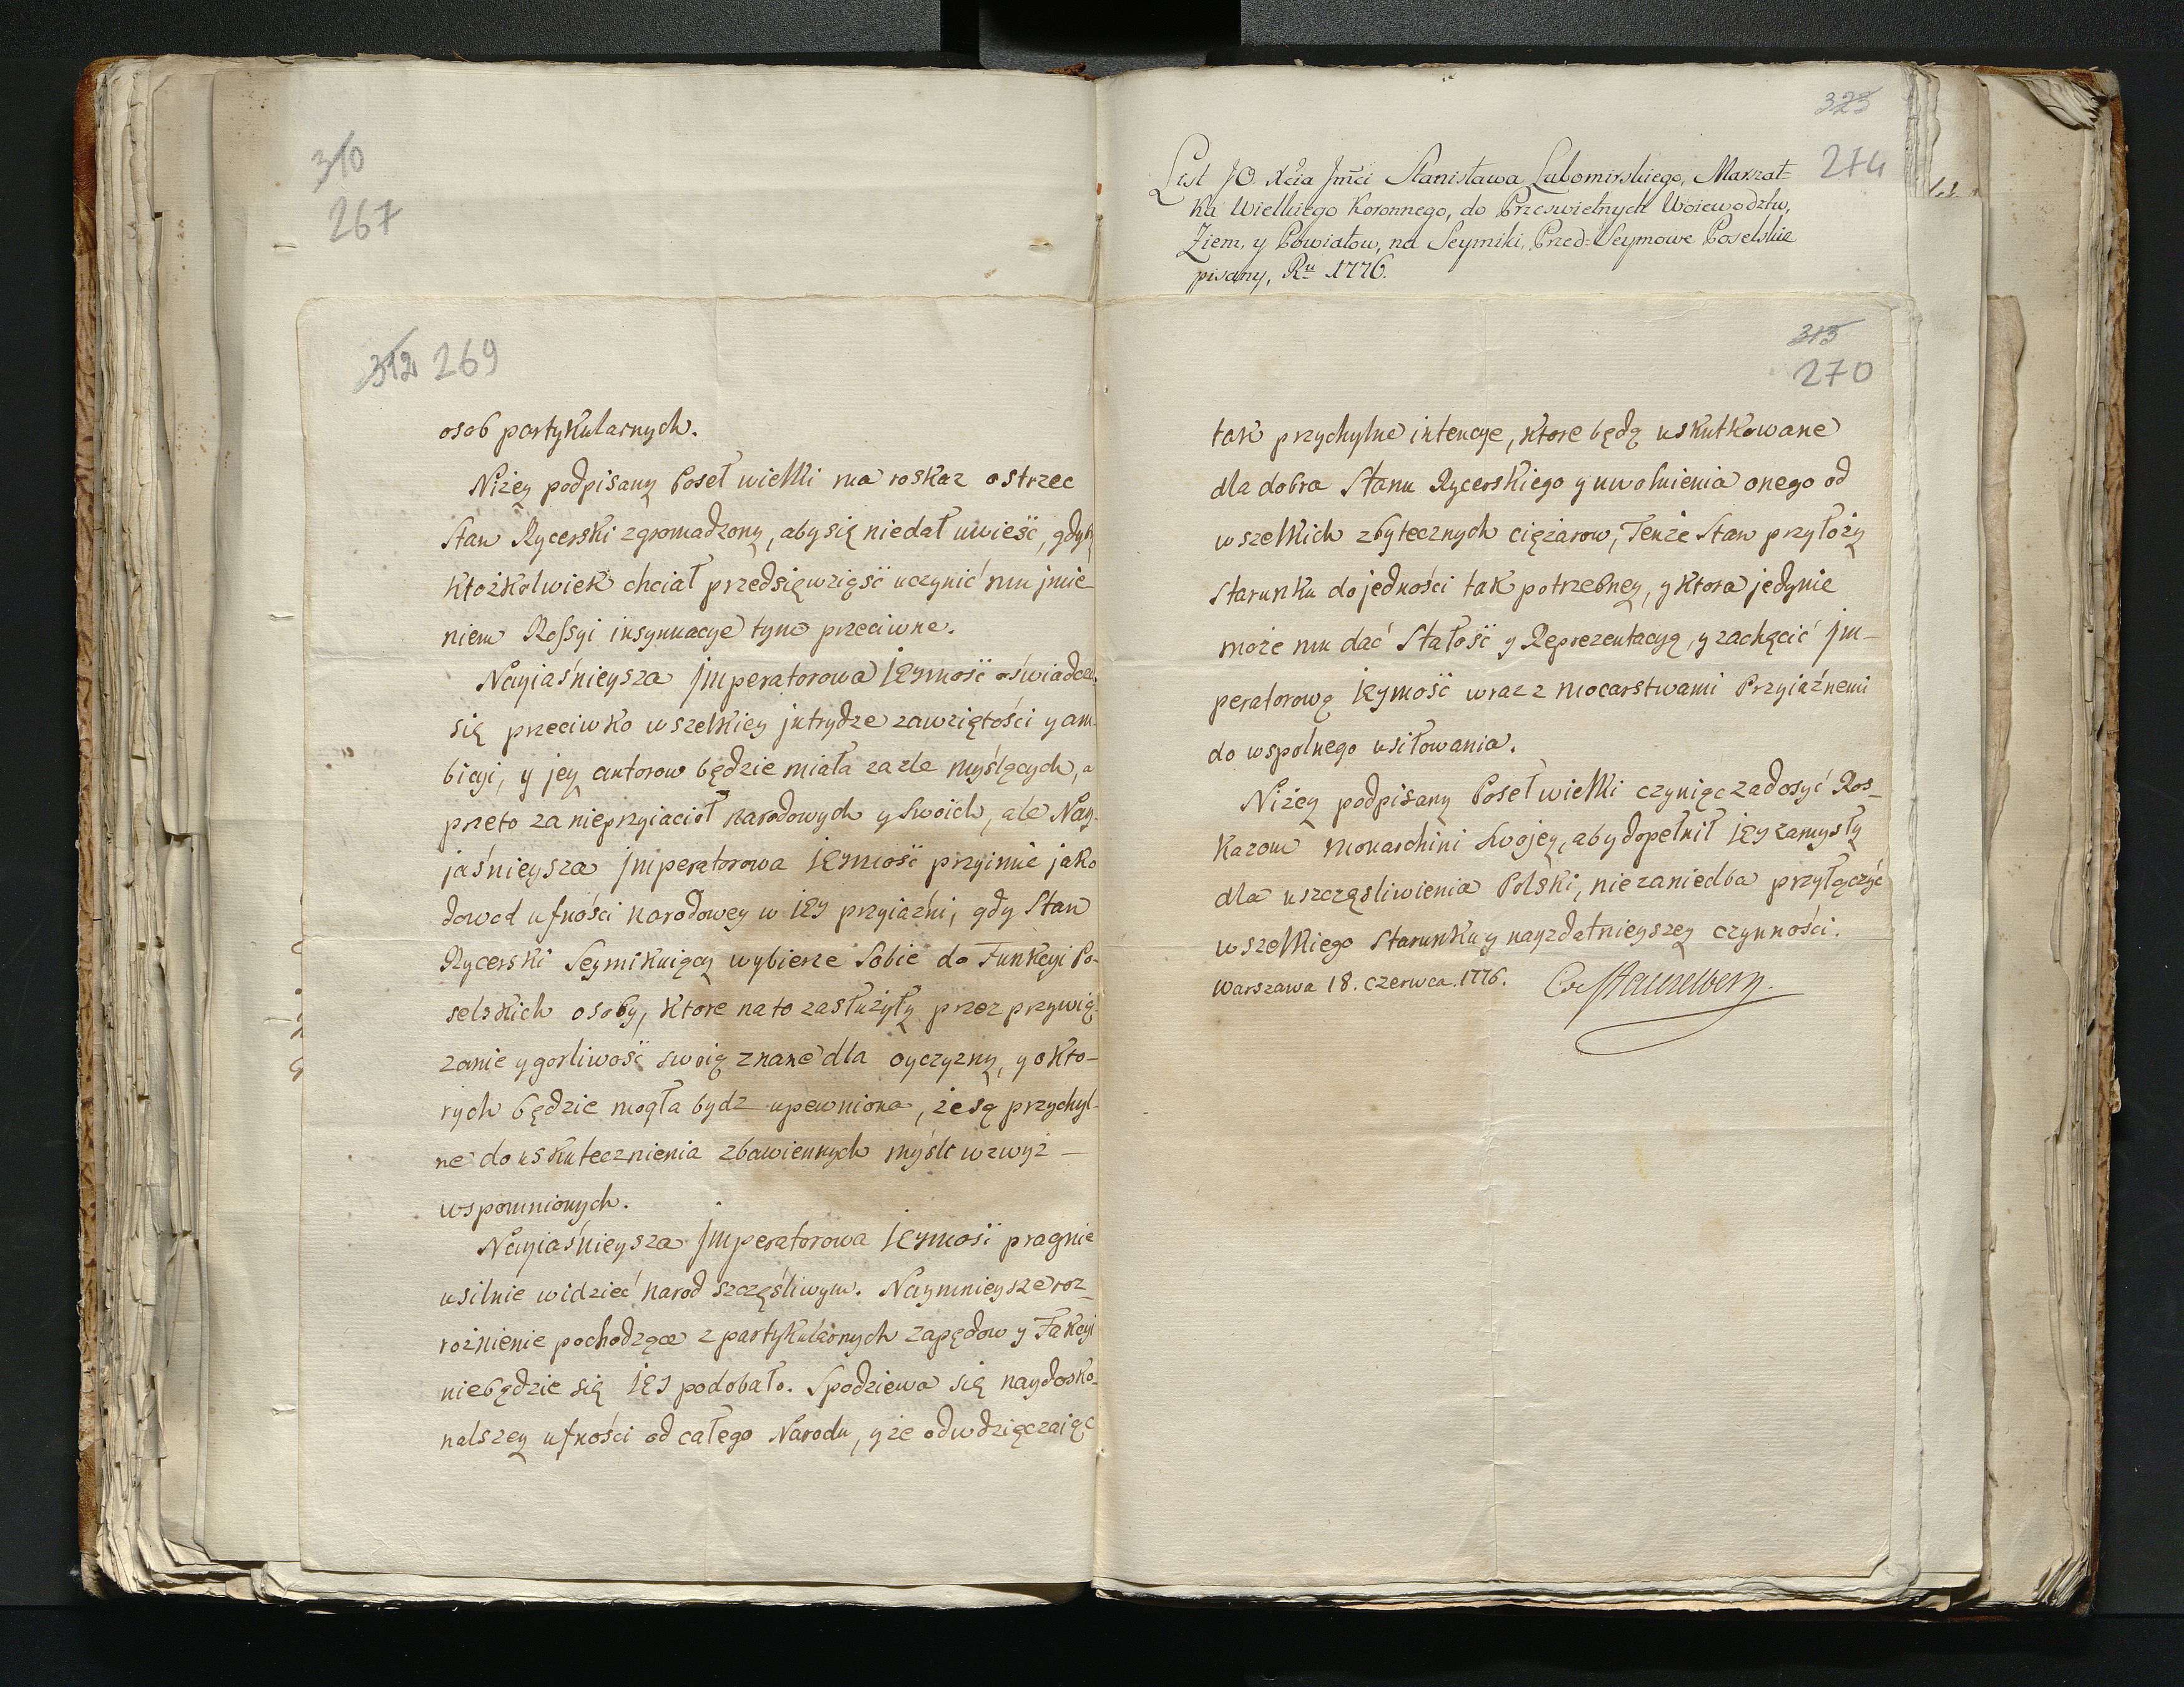 310
267
312 269
osob partykularnych.
Niżey podpisany Poseł wielki ma roskaz ostrzec
Stan Rycerski zgromadzony, aby się niedał uwieść, gdyby
ktożkolwiek chciał przedsięwziąść uczynić mu jmie-
niem Rossyi insynuacye tym przeciwne.
Nayiaśnieysza Jmperatorowa JEYmość oświadcza
się przeciwko wszelkiey jntrydze zawziętości y am-
bicyi, y jey autorow będzie miała za zle myślących, a
przeto za nieprzyiacioł narodowych y Swoich, ale Nay-
jaśnieysza Jmperatorowa JEYmość przyimie jako
dowod ufności narodowey w JEY przyiaźni, gdy Stan
Rycerski Seymikuiący wybierze Sobie do Funkcyi Po-
selskich osoby, ktore na to zasłużyły przez przywią-
zanie y gorliwość swoią znane dla oyczyzny, y o kto-
rych będzie mogła bydz upewniona, że są przychyl-
ne do uskutecznienia zbawiennych myśli wzwyż -
wspomnionych.
Nayiaśnieysza Jmperatorowa JEYmość pragnie
usilnie widzieć narod szczęśliwym. Naymnieysze roz-
rożnienie pochodzące z partykularnych zapędow y Fakcyi
niebędzie się JEY podobało. Spodziewa się naydosko-
nalszey ufności od całego Narodu, y że odwdzięczaiąc
323
274
List JO. Xcia Jmci Stanisława Lubomirskiego, Marszał-
ka Wielkiego Koronnego, do Prześwietnych Woiewodztw,
Ziem, y Powiatow, na Seymiki, Przed-Seymowe Poselskie
pisany, Ru 1776.
313
270
tak przychylne intencye, ktore będą uskutkowane
dla dobra Stanu Rycerskiego y uwolnienia onego od
wszelkich zbytecznych ciężarow, Tenże Stan przyłoży
Starunku do jedności tak potrzebney, y ktora jedynie
może mu dać Stałość y Reprezentacyą, y zachęcić Jm-
peratorowę JEYmość wraz z mocarstwami Przyiaźnemi
do wspolnego usiłowania.
Niżey podpisany Poseł wielki czyniąc zadosyć Ros-
kazom Monarchini Swojey, aby dopełnił JEY zamysły
dla uszczęsliwienia Polski, niezaniedba przyłączyć
wszelkiego Starunku y nayzdatnieyszey czynności.
Warszawa 18. Czerwca. 1776. CteStackelberg.